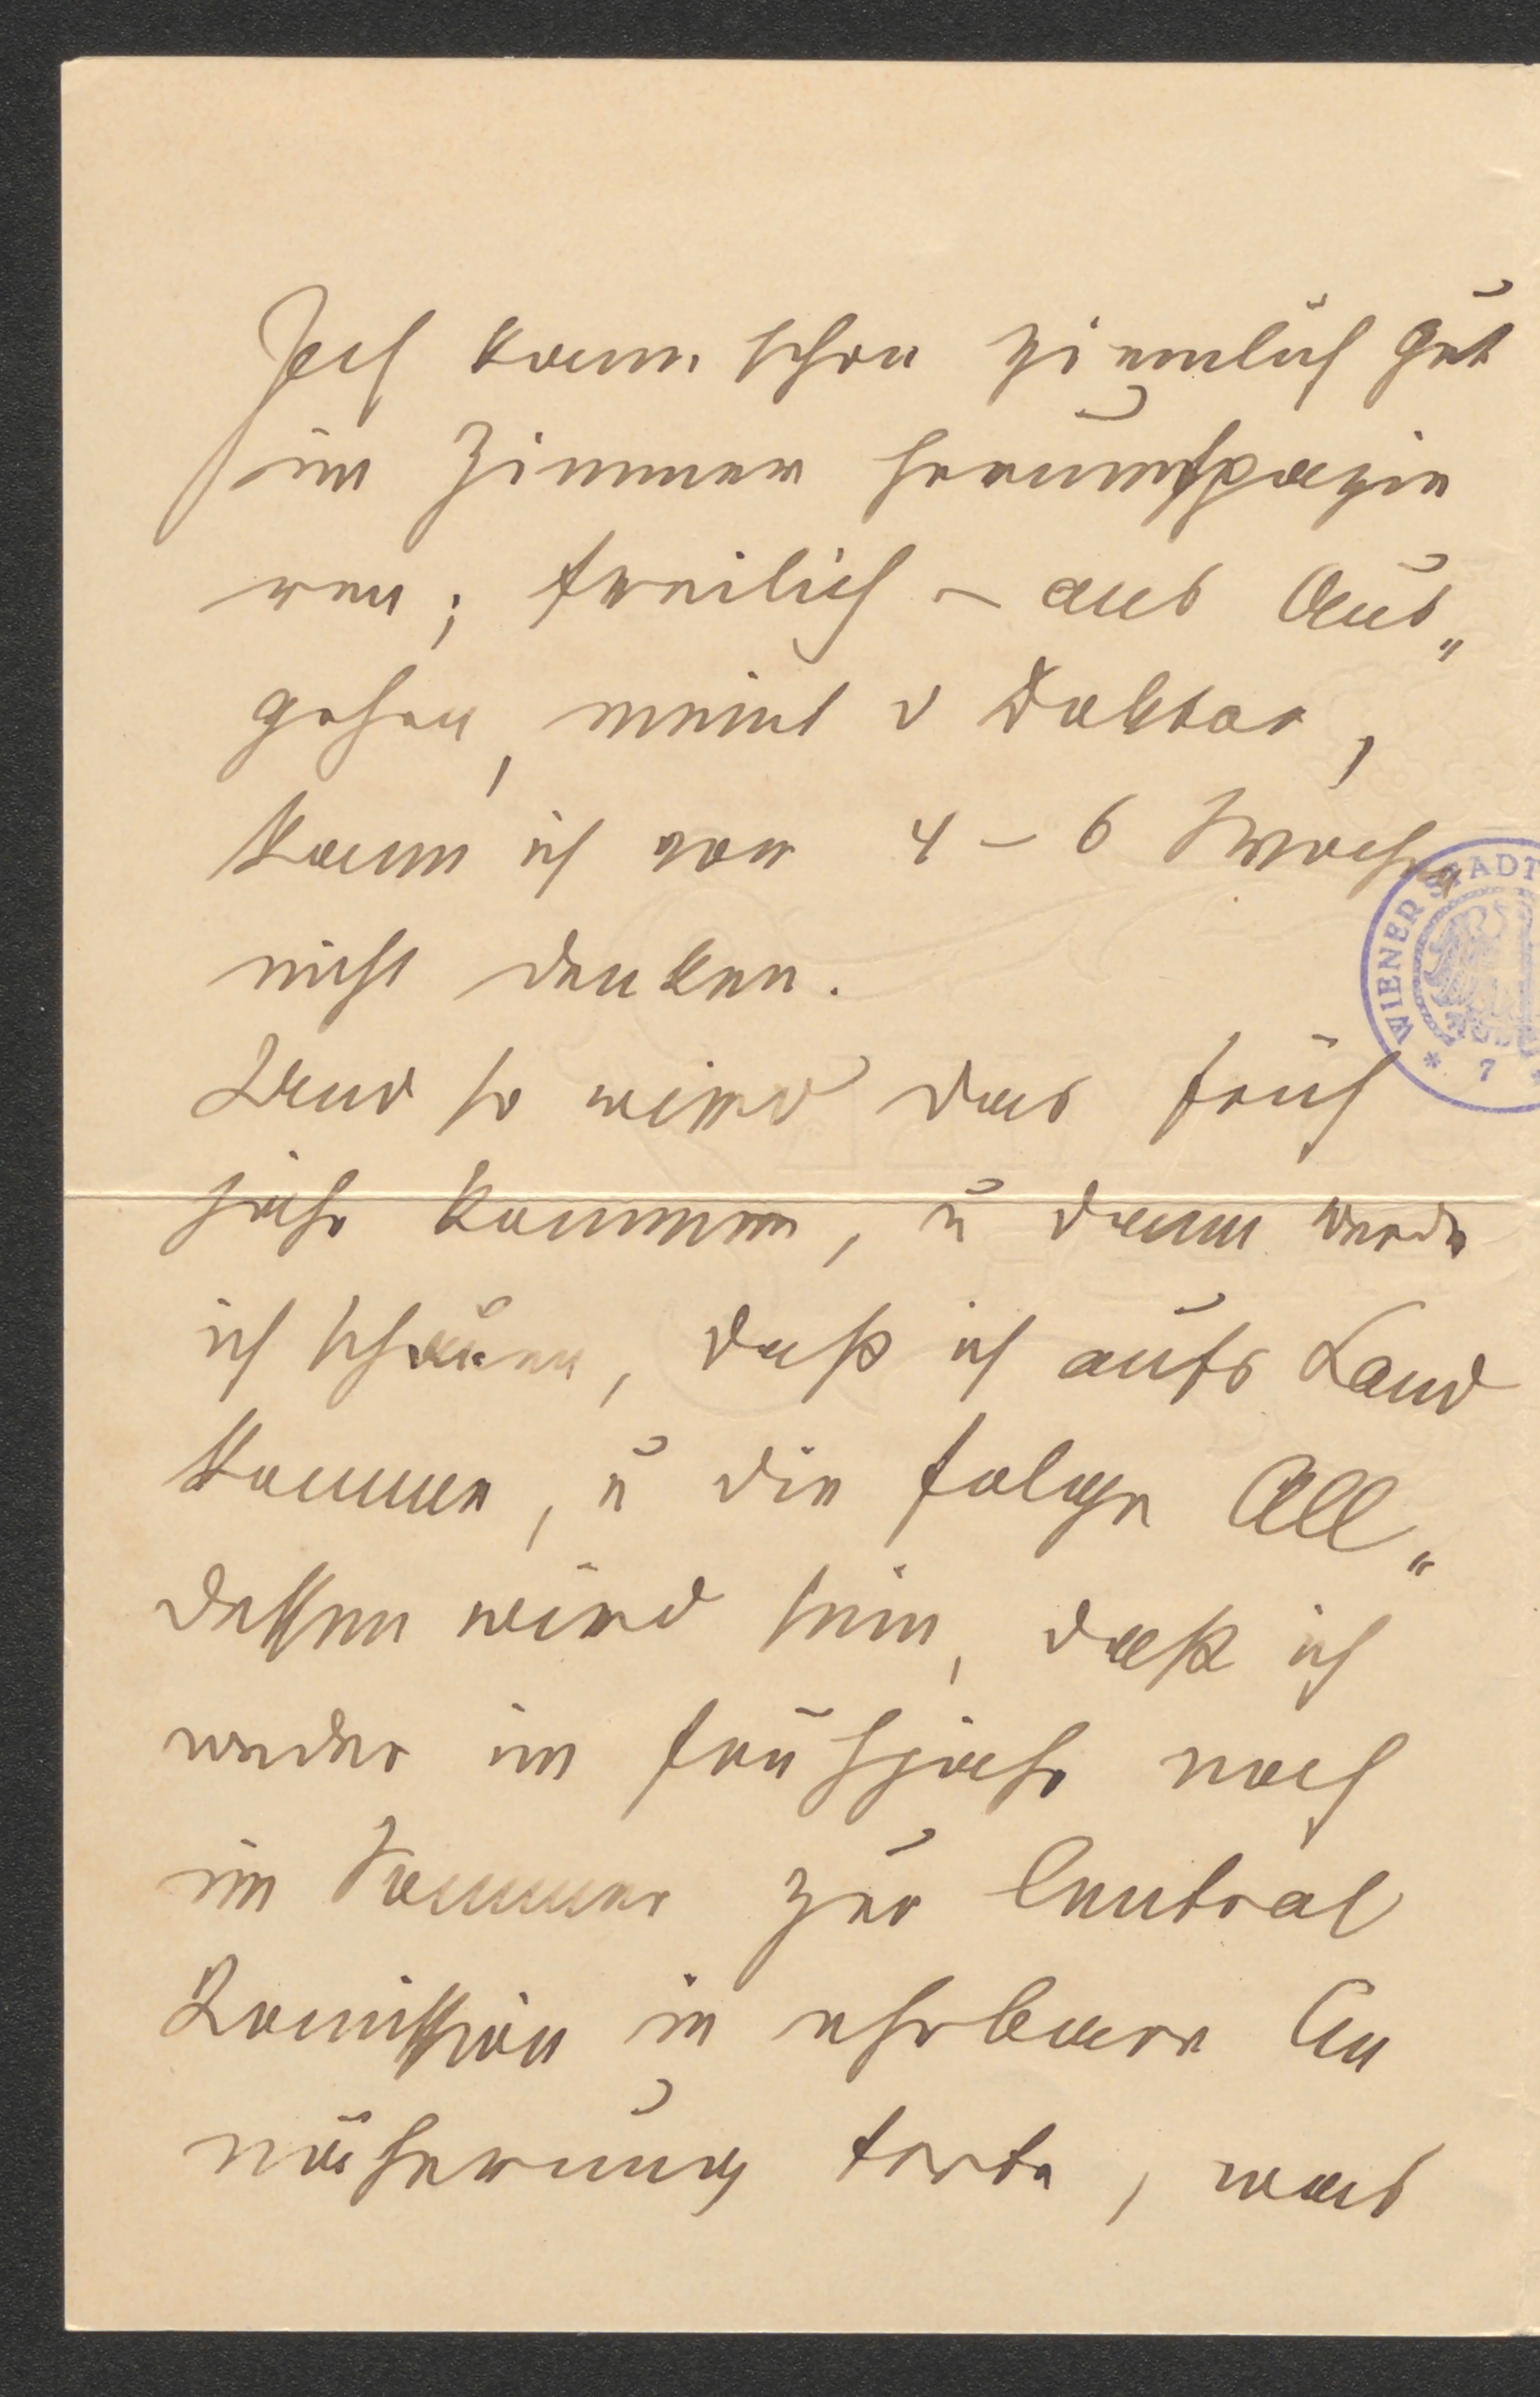 Ich kann schon ziemlich gut
im Zimmer herumspazie
ren; freilich – ans Aus„
gehen, meint d Doktor,
kann ich vor 4 – 6 Wochen
nicht denken.
Und so wird das Früh
jahr kommen, u dann werde
ich schauen, daß ich aufs Land
komme, u die Folge All„
dessen wird sein, daß ich
weder im Frühjahr noch
im Sommer zur Central
Komission in ehrbare An
näherung trete, was
WIENER STADT
* 7 *